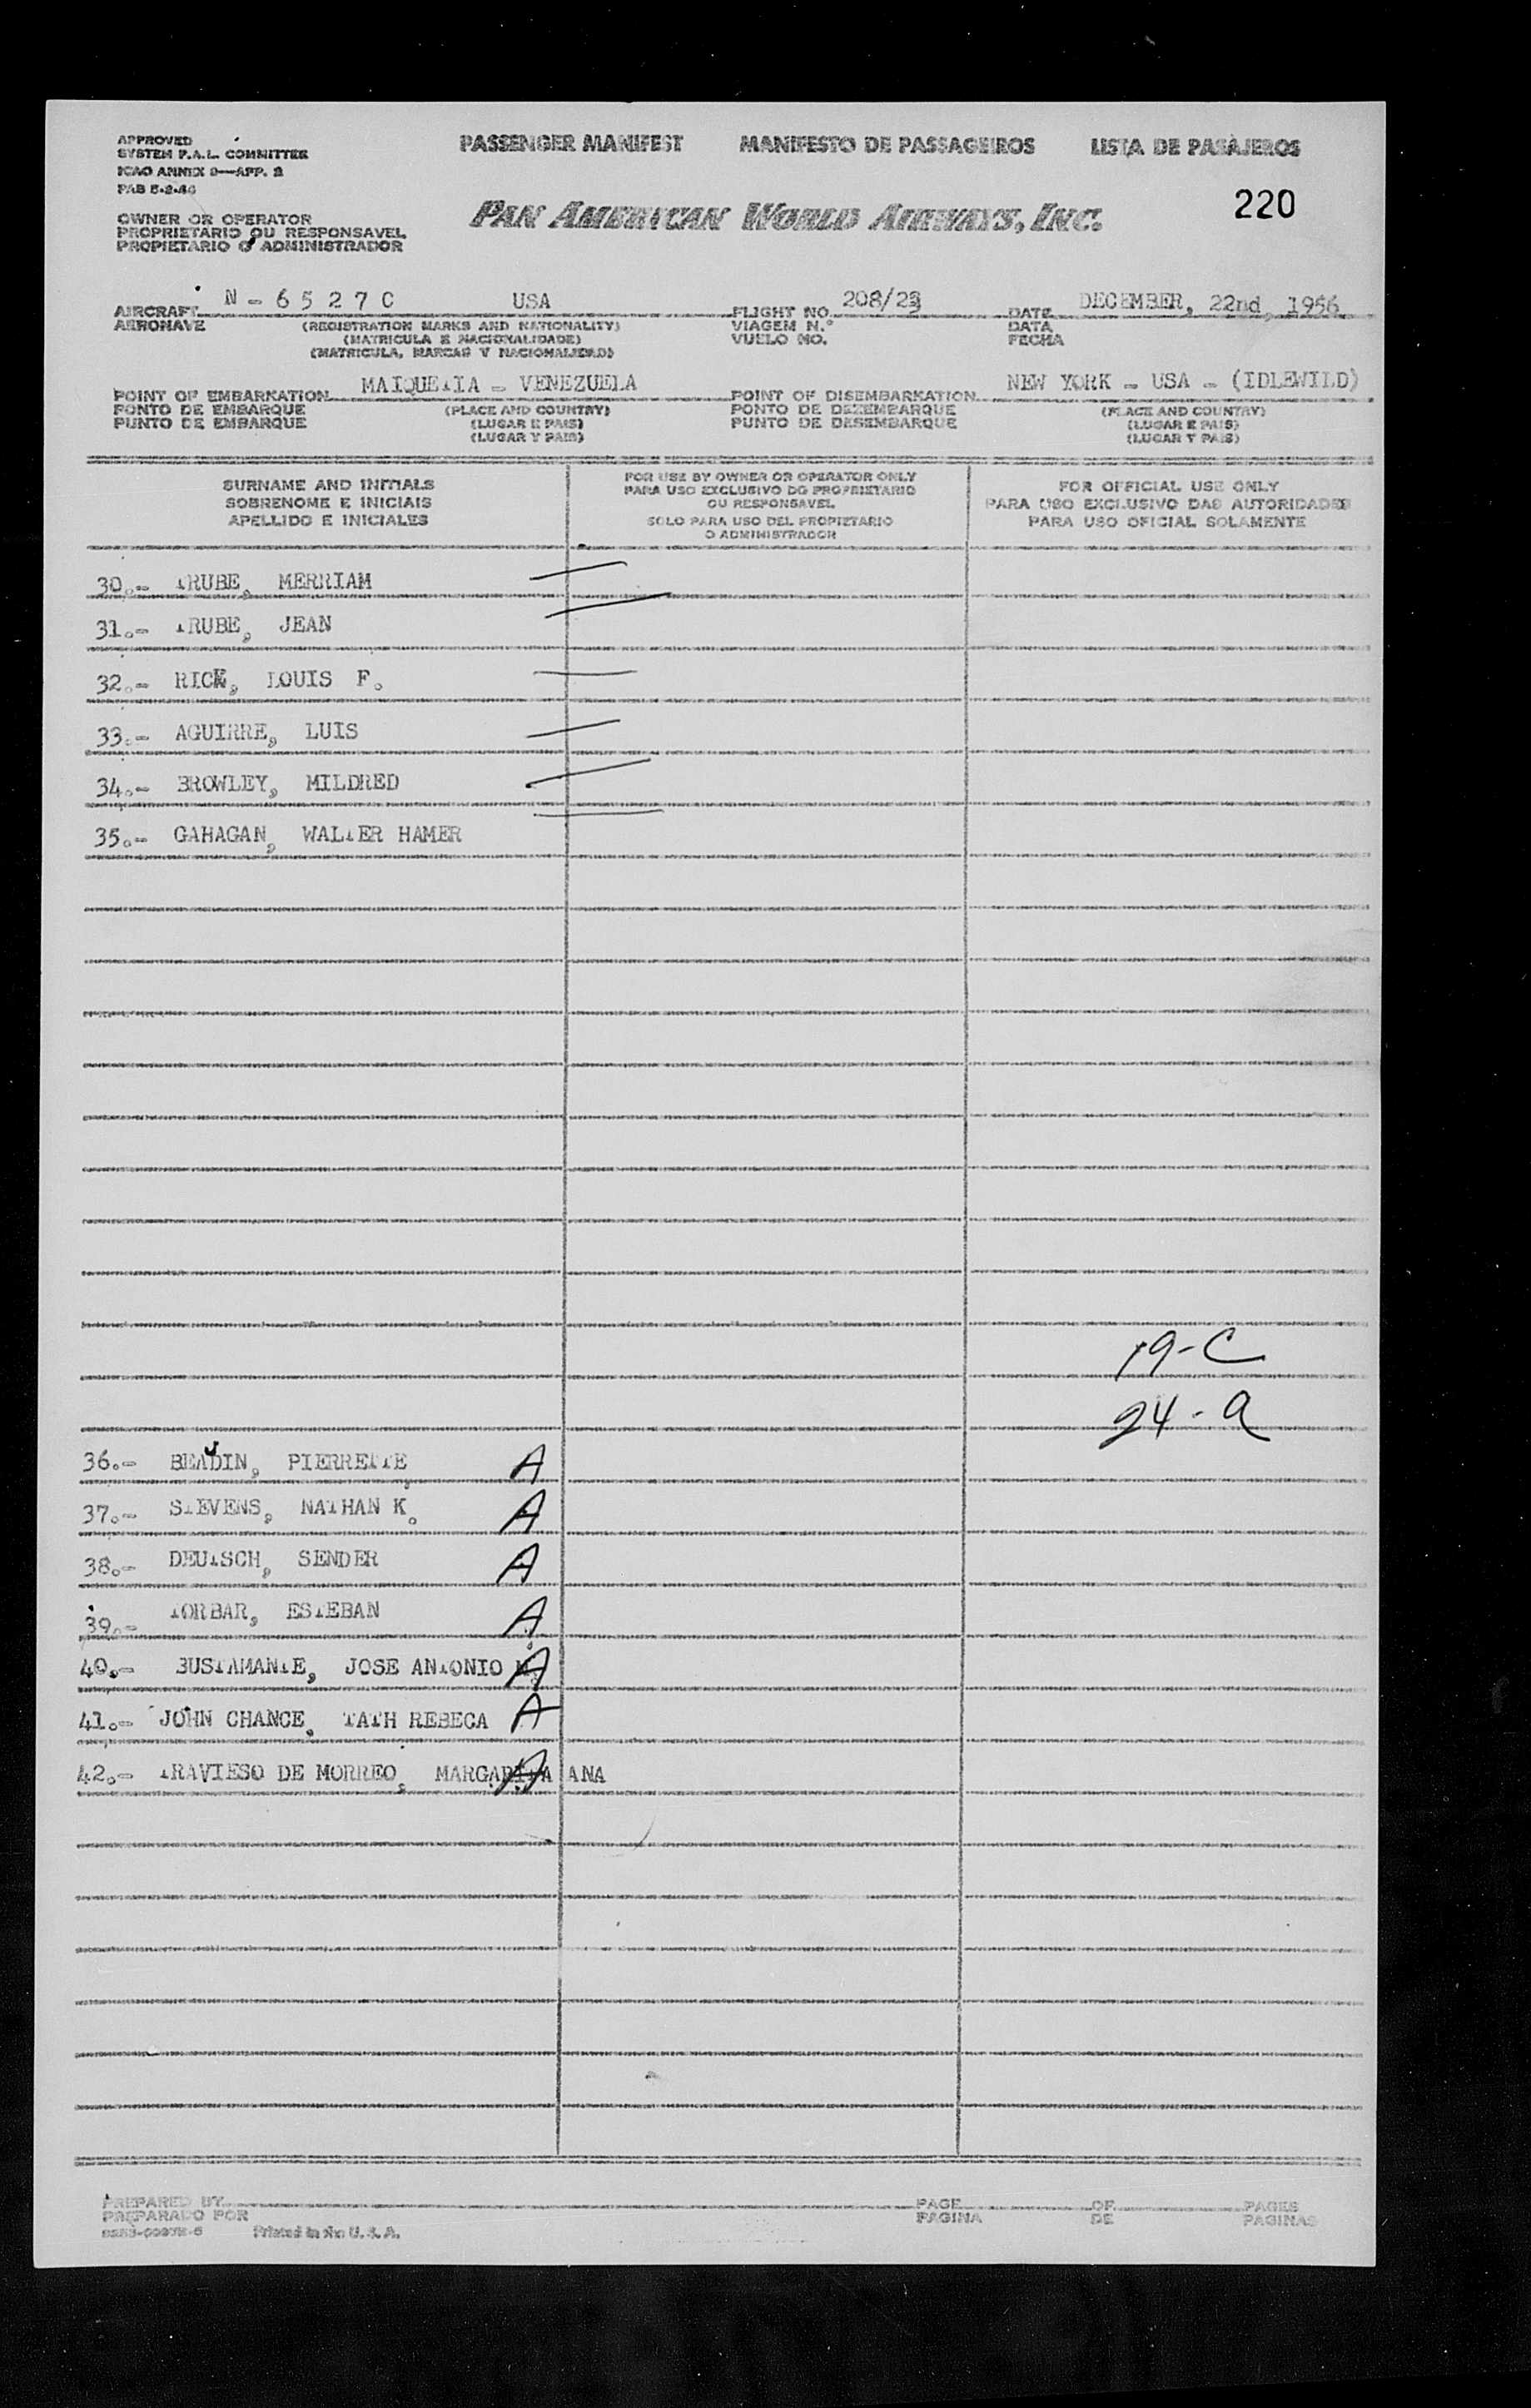 APPROVED
SYSTEM P.A.L. COMMITTEE
ICAO ANNEX 9—APP. 2
PAB 5-2-46
PASSENGER MANIFEST MANIFESTO DE PASSAGEIROS LISTA DE PASAJEROS
220
OWNER OR OPERATOR
PROPRIETARIO OU RESPONSAVEL
PROPIETARIO O ADMINISTRADOR
PAN AMERICAN WORLD AIRWAYS, INC.
AIRCRAFT N - 6 5 2 7 C USA FLIGHT NO. 208/23 DATE DECEMBER, 22nd, 1956
AERONAVE (REGISTRATION MARKS AND NATIONALITY) VIAGEM N.° DATA
(MATRICULA E NACIONALIDADE) VUELO NO. FECHA
(MATRICULA, MARCAS Y NACIONALIDAD)
POINT OF EMBARKATION MAIQUETIA - VENEZUELA POINT OF DISEMBARKATION NEW YORK - USA - (IDLEWILD)
PONTO DE EMBARQUE (PLACE AND COUNTRY) PONTO DE DEZEMBARQUE (PLACE AND COUNTRY)
PUNTO DE EMBARQUE (LUGAR E PAIS) PUNTO DE DESEMBARQUE (LUGAR E PAIS)
(LUGAR Y PAIS) (LUGAR Y PAIS)
SURNAME AND INITIALS
SOBRENOME E INICIAIS
APELLIDO E INICIALES
FOR USE BY OWNER OR OPERATOR ONLY
PARA USO EXCLUSIVO DO PROPRIETARIO
OU RESPONSAVEL
SOLO PARA USO DEL PROPIETARIO
O ADMINISTRADOR
FOR OFFICIAL USE ONLY
PARA USO EXCLUSIVO DAS AUTORIDADES
PARA USO OFICIAL SOLAMENTE
30.- TRUBE, MERRIAM
31.- TRUBE, JEAN
32.- RICE, LOUIS F.
33.- AGUIRRE, LUIS
34.- BROWLEY, MILDRED
35.- GAHAGAN, WALTER HAMER
19-C
24-A
36.- BEAUDIN, PIERRETTE A
37.- STEVENS, NATHAN K. A
38.- DEUTSCH, SENDER A
39.- TORBAR, ESTEBAN A
40.- BUSTAMANTE, JOSE ANTONIO A
41.- JOHN CHANCE, TATH REBECA A
42.- TRAVIESO DE MORREO, MARGARITA ANA A
PREPARED BY PAGE OF PAGES
PREPARADO POR PAGINA DE PAGINAS
Printed in the U. S. A.